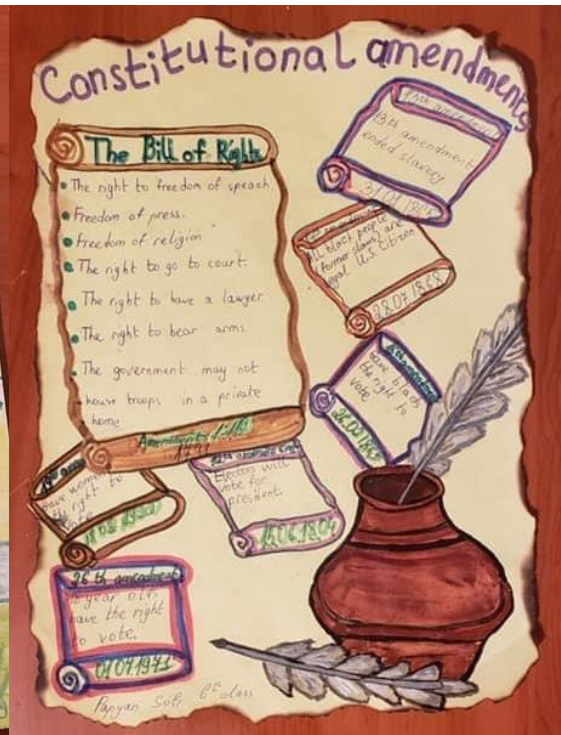 Constitutional amendments
The Bill of Rights
The right to freedom of speach
Freedom of press.
Freedom of religion
The right to go to court.
The right to have a lawyer
The right to bear arms.
The government may not
house troops in a private
home
Amendments
13th amendment
ended slavery
All black people
(former slaves) are
legal U.S. Citizen
28.07.1868
15th amendment
Gave blacks
the right to
vote
12th amendment
Electors will
vote for
president.
15.06.1804
Gave women
the right to
vote
26th amendment
year olds
have the right
to vote.
01.07.1971
Papyan 6 class